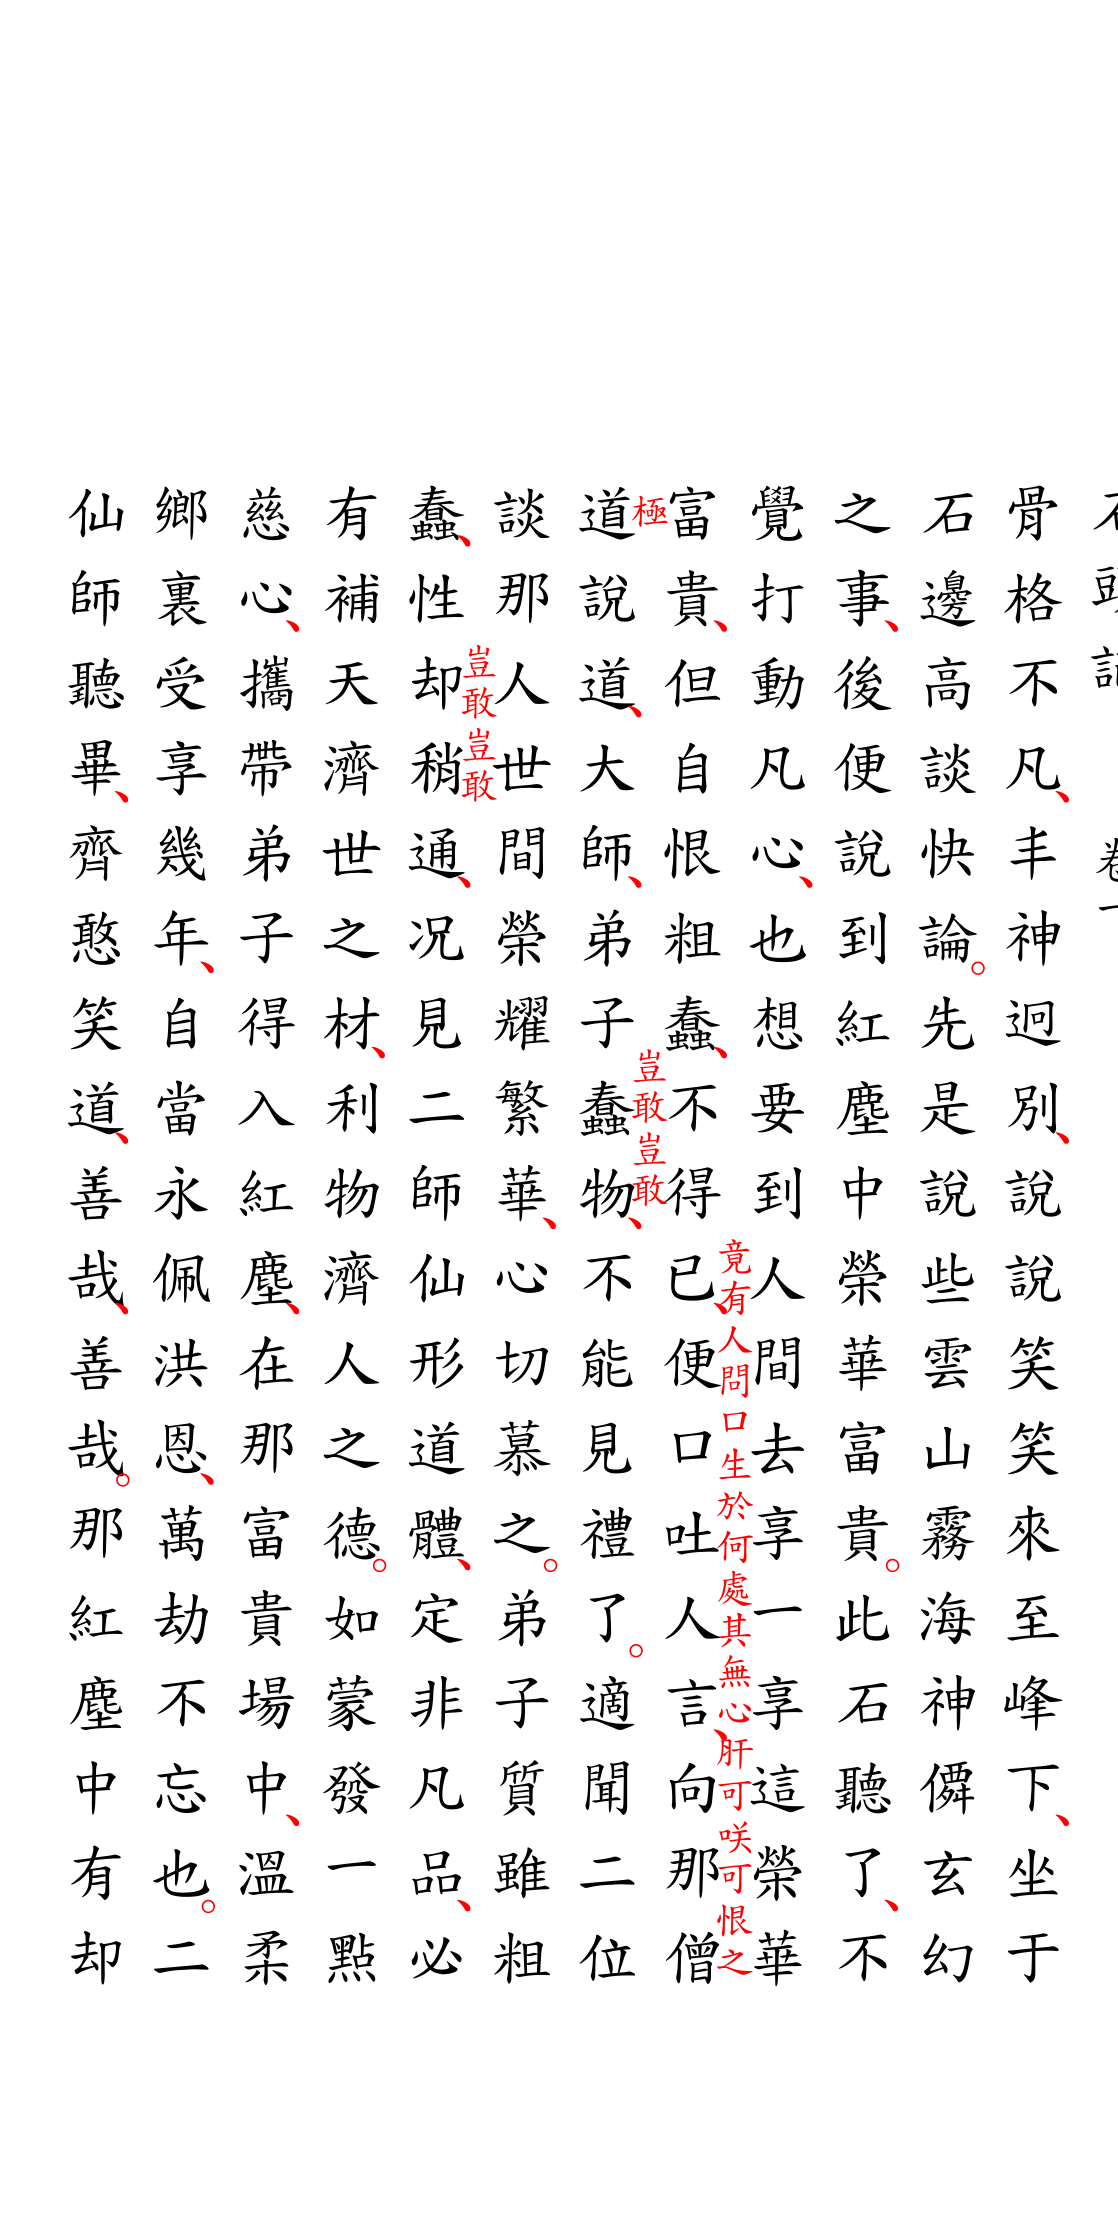 石頭記 卷一
骨格不凡、丰神迥別、說說笑笑來至峰下、坐于
石邊高談快論。先是說些雲山霧海神僊玄幻
之事、後便說到紅塵中榮華富貴。此石聽了、不
覺打動凡心、也想要到人間去享一享這榮華
富貴、但自恨粗蠢、不得已、便口吐人言、向那僧
竟有人問口生於何處其無心肝可咲可恨之
極
道說道、大師、弟子蠢物、不能見禮了。適聞二位
豈敢豈敢
談那人世間榮耀繁華、心切慕之。弟子質雖粗
蠢、性却稍通、况見二師仙形道體、定非凡品、必
豈敢豈敢
有補天濟世之材、利物濟人之德。如蒙發一點
慈心、攜帶弟子得入紅塵、在那富貴場中、溫柔
鄉裏受享幾年、自當永佩洪恩、萬劫不忘也。二
仙師聽畢、齊憨笑道、善哉、善哉。那紅塵中有却